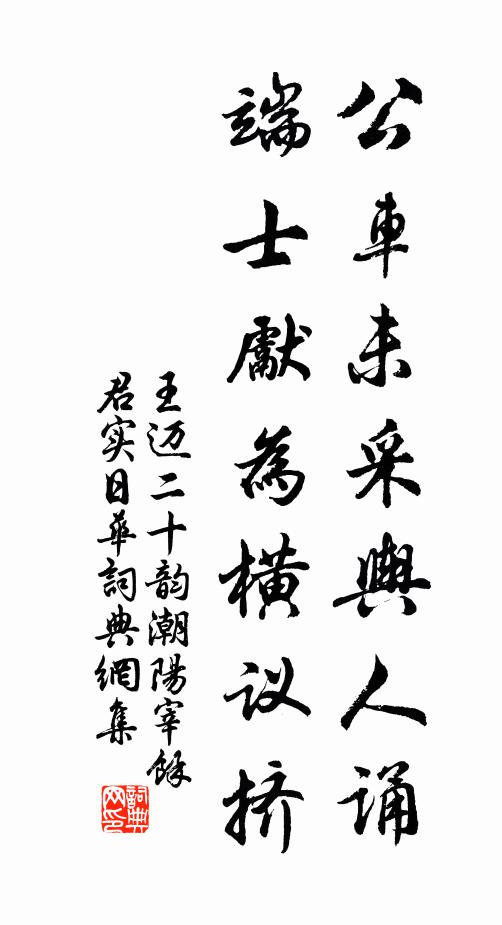 公車未采輿人诵
端士獻為橫议挤
王迈二十韵潮陽宰餘
君实日華詞典網集
詞典
网印